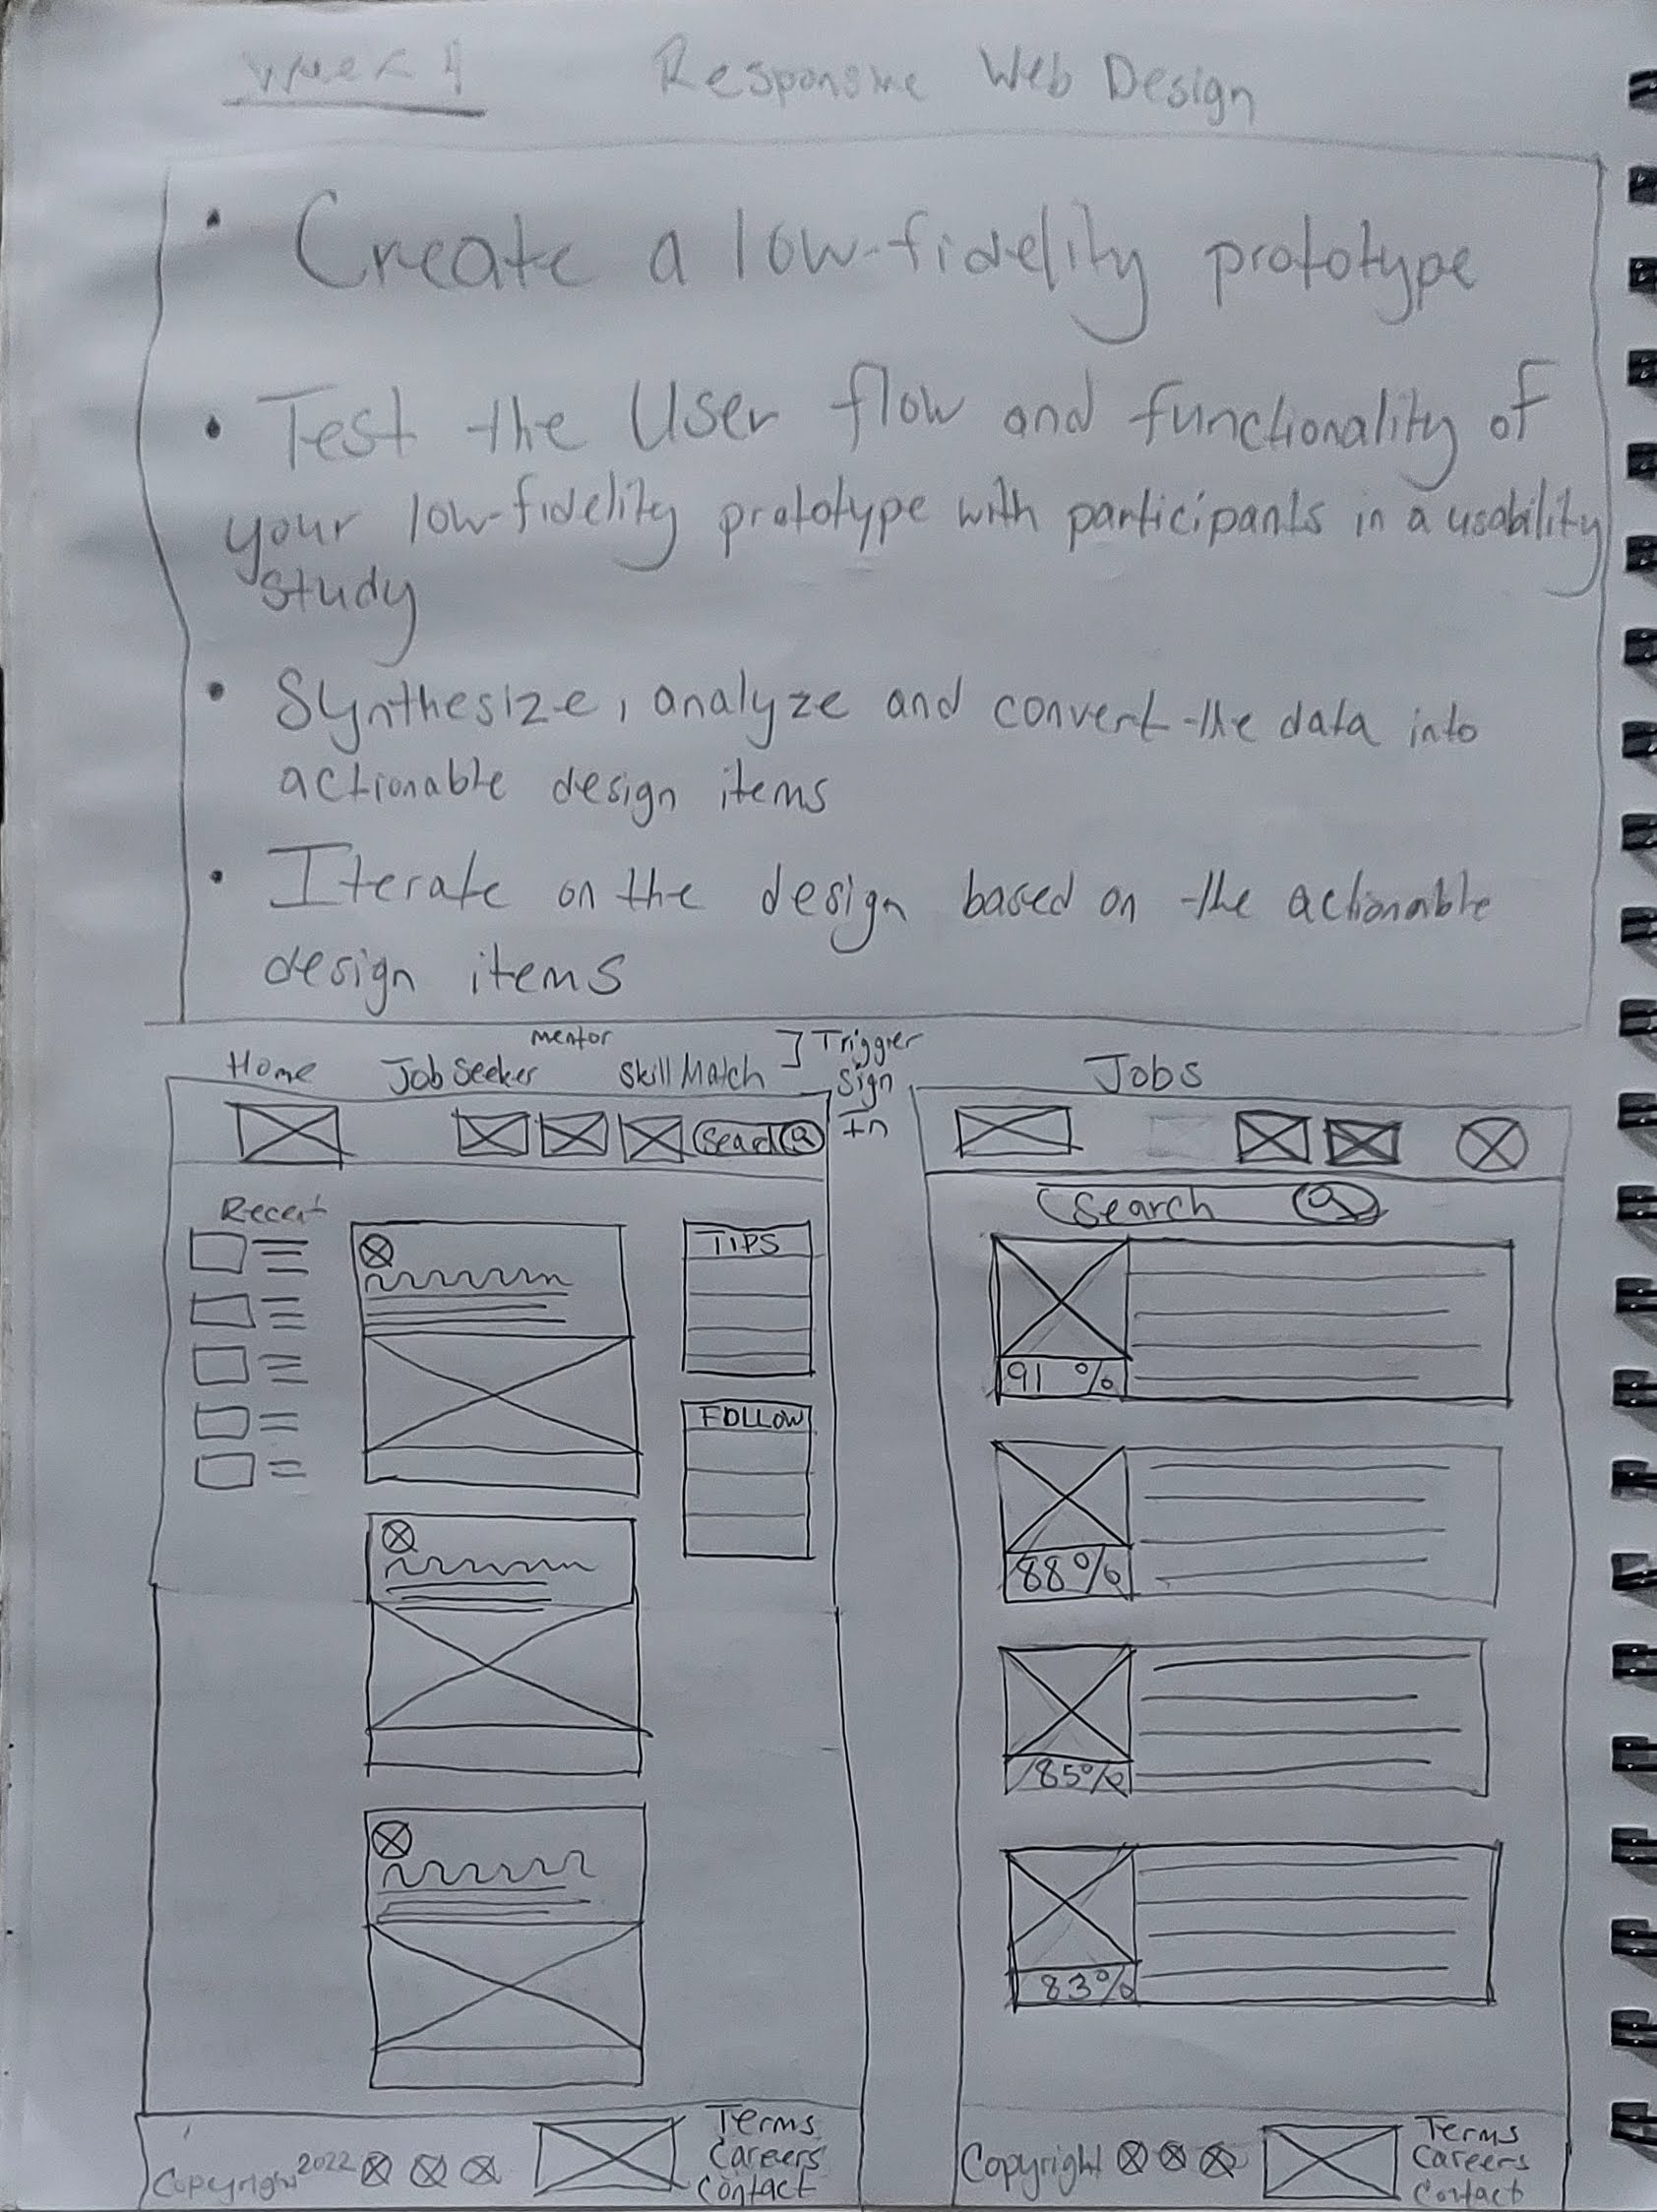 Week 4 Responsive Web Design
• Create a low-fidelity prototype
• Test the User flow and functionality of
your low-fidelity prototype with participants in a usability
study
• Synthesize, analyze and convert the data into
actionable design items
• Iterate on the design based on the actionable
design items
mentor
Home Job Seeker Skill Match ] Trigger
Sign
In
Search
Recent
TIPS
FOLLOW
Copyright 2022
Terms
Careers
Contact
Jobs
Search
91 %
88%
85%
83%
Copyright
Terms
Careers
Contact